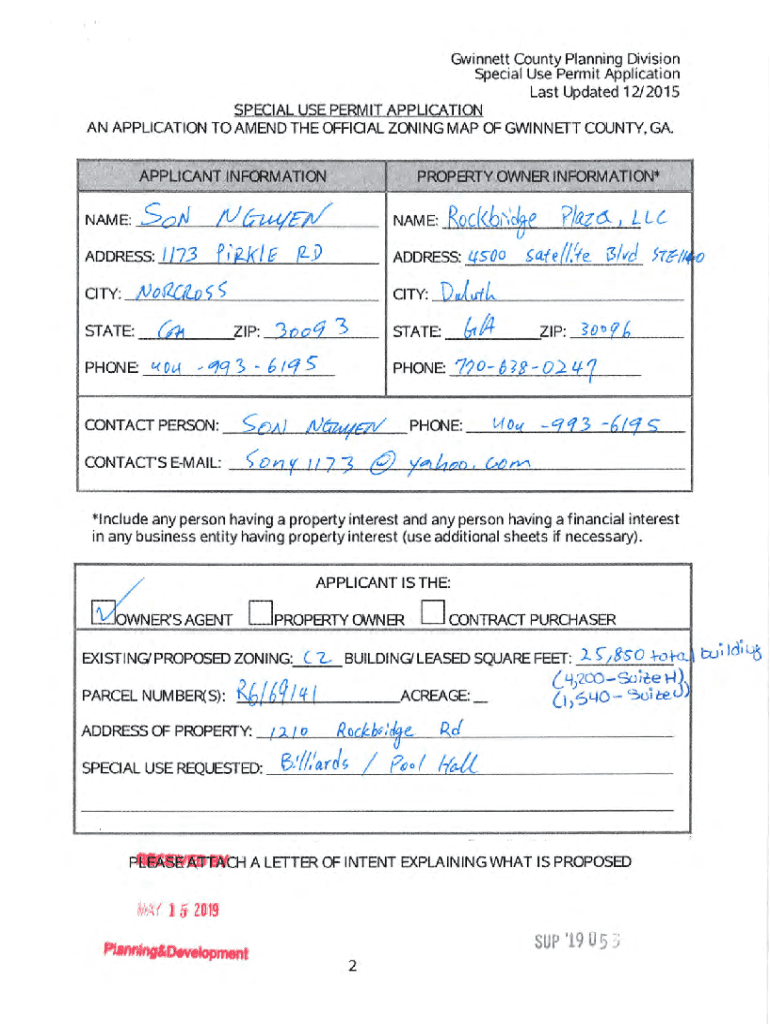 Gwinnett County Planning Division
Special Use Permit Application
Last Updated 12/2015
SPECIAL USE PERMIT APPLICATION
AN APPLICATION TO AMEND THE OFFICIAL ZONING MAP OF GWINNETT COUNTY, GA.
APPLICANT INFORMATION PROPERTY OWNER INFORMATION*
NAME: SON NGUYEN NAME: Rockbridge Plaza, LLC
ADDRESS: 1173 PiRKlE RD ADDRESS: 4500 Satellite Blvd STE 1140
CITY: NORCROSS CITY: Duluth
STATE: GA ZIP: 30093 STATE: GA ZIP: 30096
PHONE: 404-993-6195 PHONE: 770-638-0247
CONTACT PERSON: SON NGUYEN PHONE: 404-993-6195
CONTACT'S E-MAIL: Sony1173@yahoo.com
*Include any person having a property interest and any person having a financial interest
in any business entity having property interest (use additional sheets if necessary).
APPLICANT IS THE:
✓ OWNER'S AGENT PROPERTY OWNER CONTRACT PURCHASER
EXISTING/PROPOSED ZONING: C2 BUILDING/LEASED SQUARE FEET: 25,850 total building
(4,200-Suite H)
PARCEL NUMBER(S): R6169141 ACREAGE:
(1,540-Suite J)
ADDRESS OF PROPERTY: 1210 Rockbridge Rd
SPECIAL USE REQUESTED: Billiards / Pool Hall
PLEASE ATTACH A LETTER OF INTENT EXPLAINING WHAT IS PROPOSED
RECEIVED BY
MAY 15 2019
Planning&Development
SUP '19 053
2